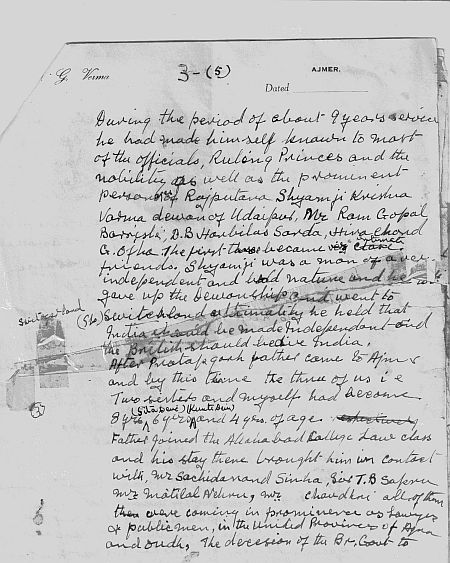 G. Verma
3-(5)
AJMER.
Dated
During the period of about 9 years service
he had made himself known to most
of the officials, Ruling Princes and the
nobility as well as the prominent
persons of Rajputana Shyamji Krishna
Varma dewan of Udaipur, Mr Ram Gopal
D.B Harbilas Sarda, Hira Chand
G. Ojha. The first three became
friends. Shyamji was a man of a very
independent and nature and he
gave up the Dewanship and went to
Switzerland
(Sto) Switzkland ultimately he held that
India should be made Independent and
the British should leave India.
After Pratapgarh father came to Ajmer
and by this time the three of us i e
Two sisters and myself had become
(Sita Devi) (Kunti Devi)
8 yrs, 6 yrs, and 4 yrs. of age.
Father joined the Allahabad College Law class
and his stay there brought him in contact
with, Mr Sachidanand Sinha, Sir T.B Sapru
Mr Matilal Nehru, Mr. Chaudhri all of them
were coming in prominence as Lawyer
& publicmen, in the United Provinces of Agra
and oudh. The decesion of the Br. Govt to